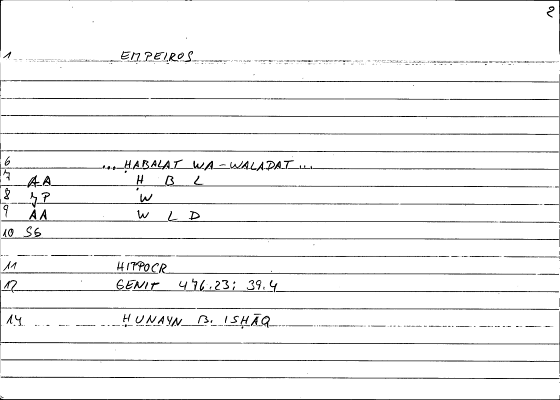 2
1 EMPEIROS
6 ... ḤABALAT WA-WALADAT ...
7 AA Ḥ B L
8 JP W
9 AA W L D
10 SG
11 HIPPOCR
12 GENIT 476.23; 39.4
14 ḤUNAYN B. ISḤĀQ